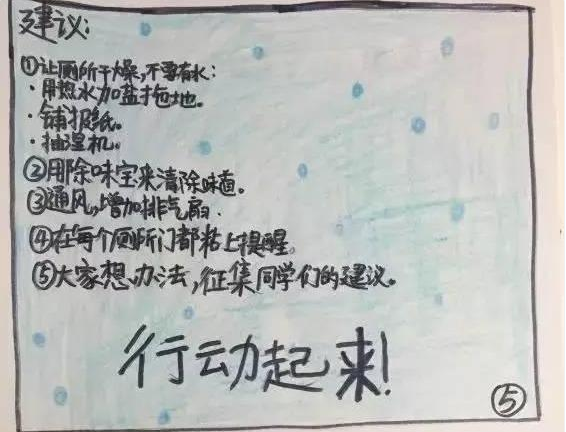 建议:
①让厕所干燥,不要有水:
·用热水加盐拖地。
·铺报纸。
·抽湿机。
②用除味宝来清除味道。
③通风,增加排气扇.
④在每个厕所门都粘上提醒。
⑤大家想办法,征集同学们的建议。
行动起来!
⑤